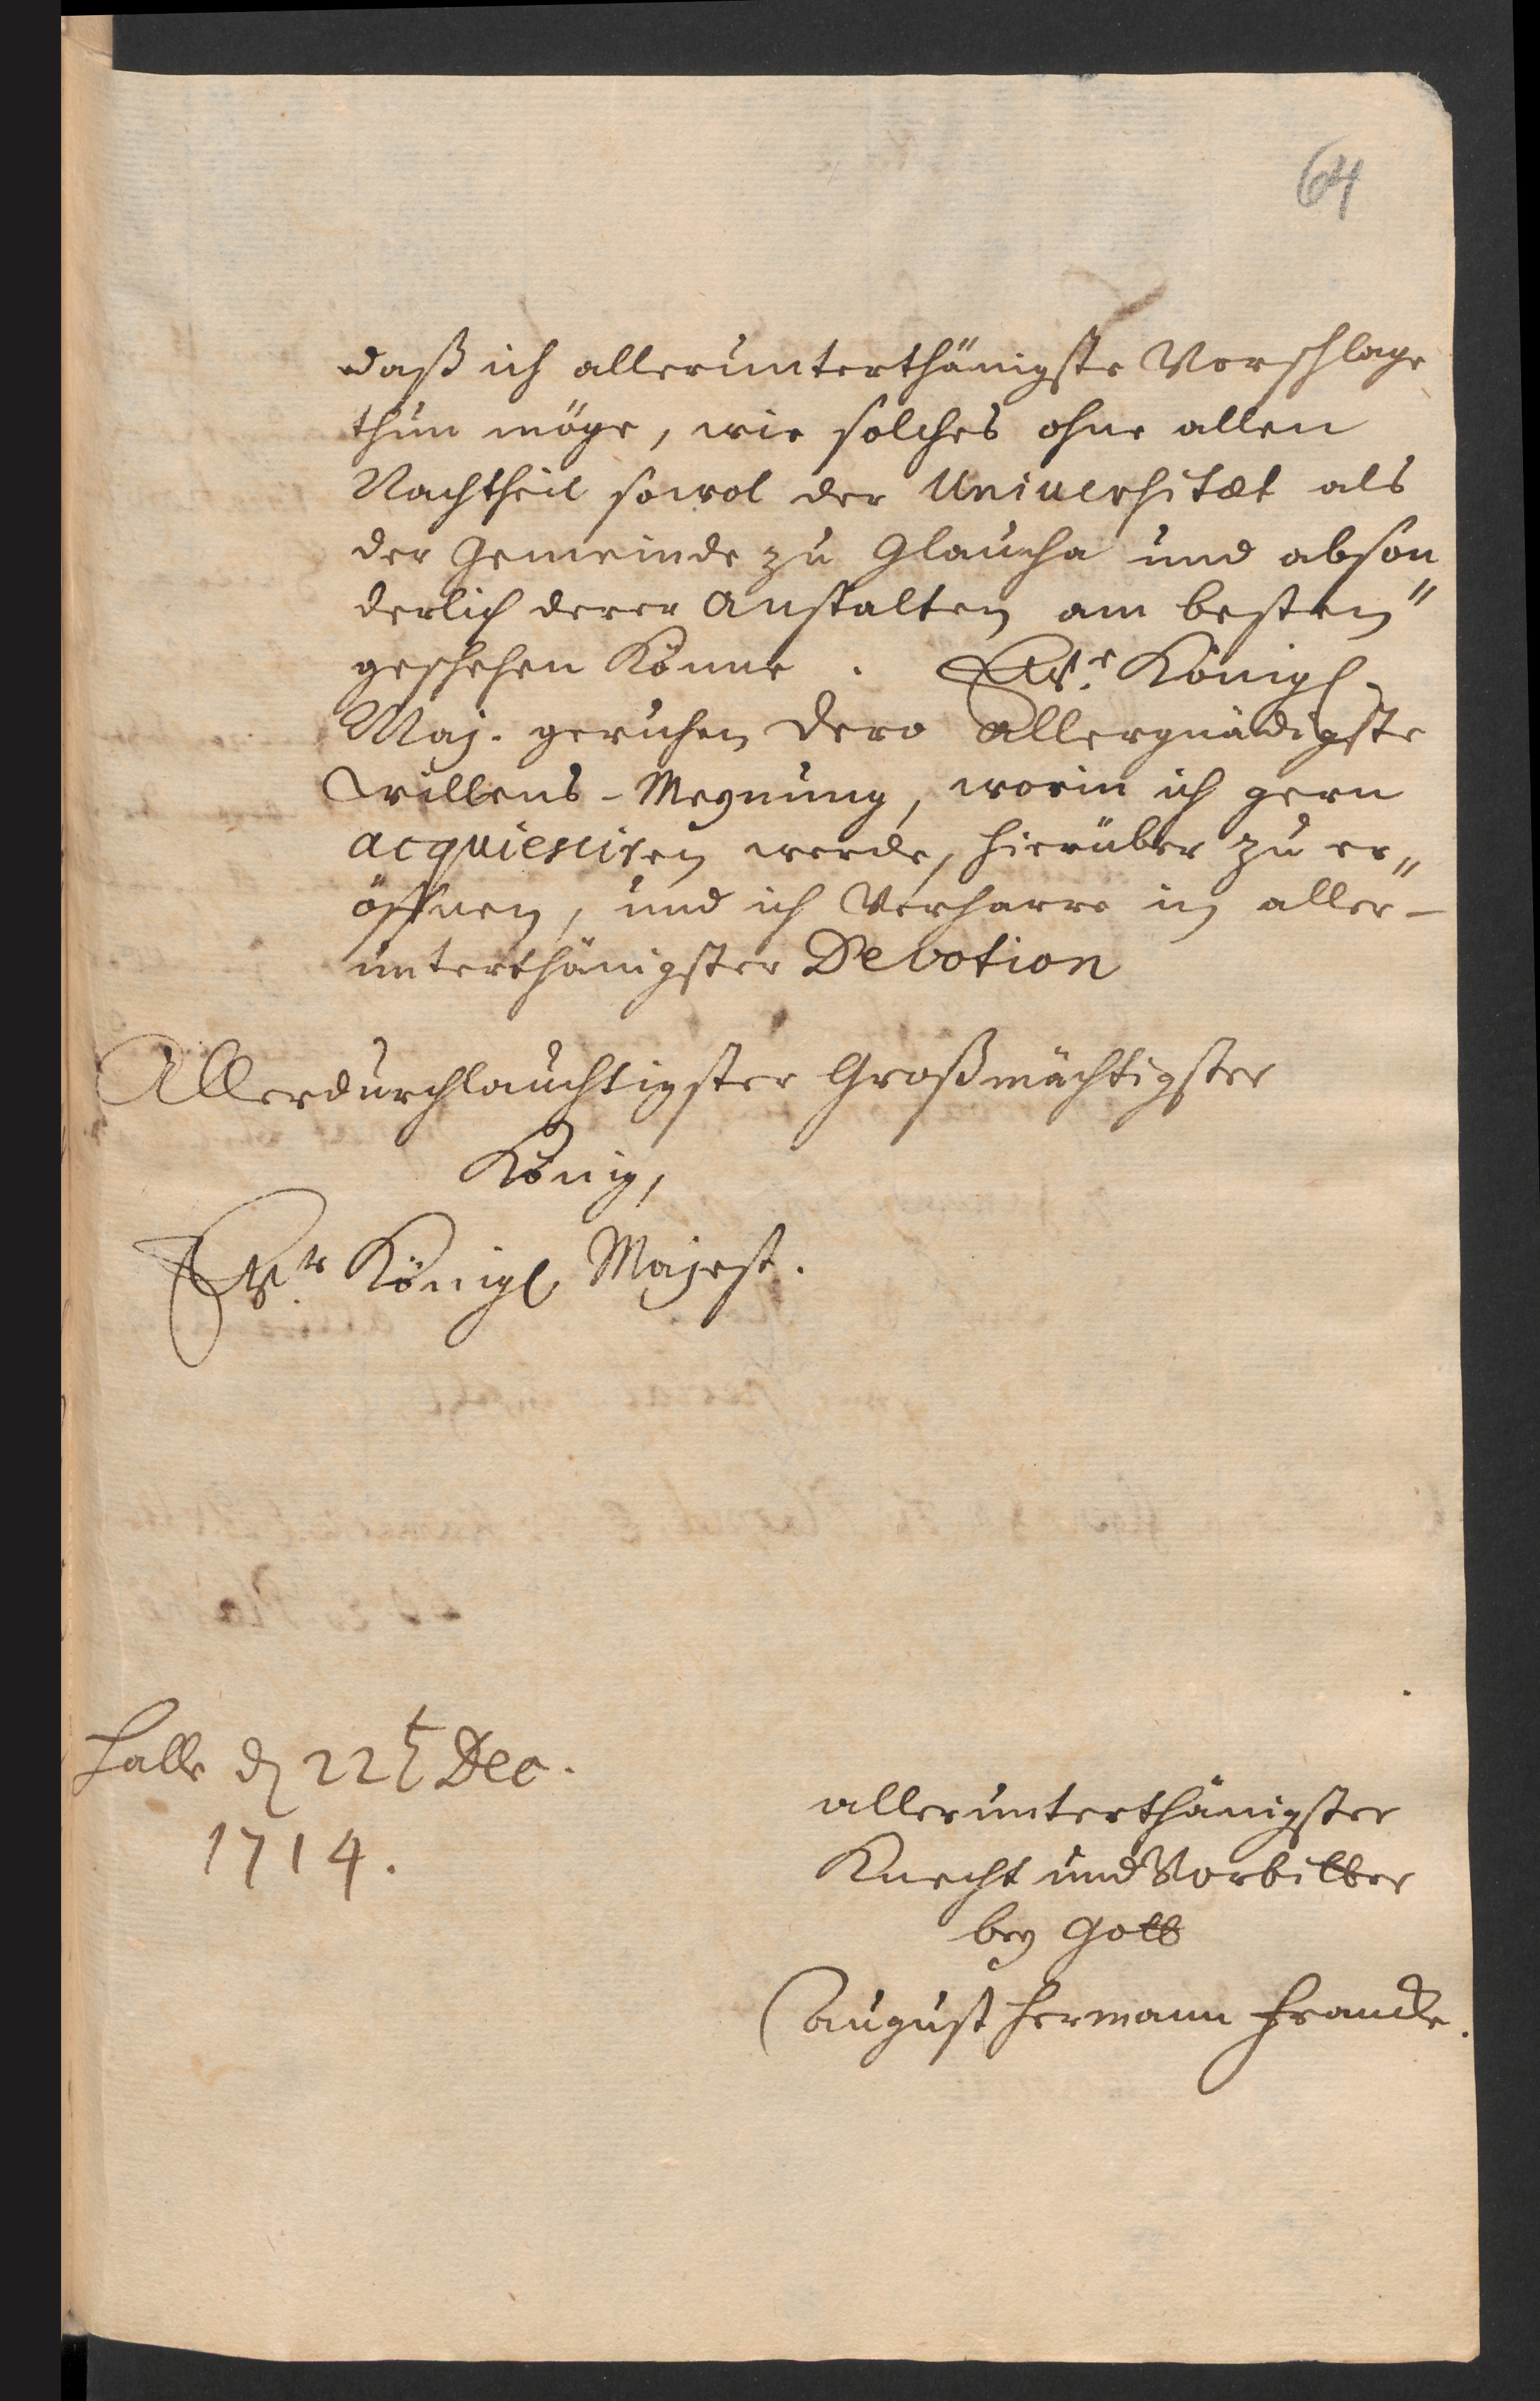 64
daß ich allerunterthänigste Vorschlage
thun möge, wie solches ohne allen
Nachtheil sowol der Universitæt als
der Gemeinde zu Glaucha und abson
derlich derer Anstalten am besten"
geschehen könne. Ew.r Königl.
Maj. geruhen Dero Allergnädigste
Willens-Meynung, worin ich gern
acquiesciren werde, hierüber zu er„
öffnen, und ich Verharre in aller-
unterthänigster Devotion
Allerdurchlauchtigster Großmächtigster
König,
Ew.r Königl. Majest.
Halle d 22t Dec.
1714.
allerunterthänigster
Knecht und Vorbitter
bey Gott
August Hermann Francke.